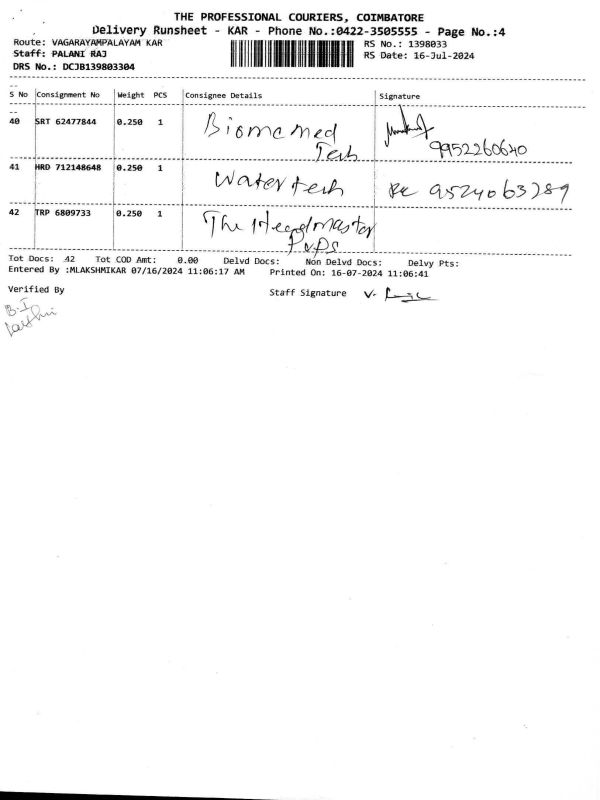 THE PROFESSIONAL COURIERS, COIMBATORE
Delivery Runsheet - KAR - Phone No.:0422-3505555 - Page No.:4
Route: VAGARAYAMPALAYAM KAR RS No.: 1398033
Staff: PALANI RAJ RS Date: 16-Jul-2024
DRS No.: DCJB139803304
S No Consignment No Weight PCS Consignee Details Signature
40 SRT 62477844 0.250 1 Biomed Med
Tech 9952260640
41 HRD 712148648 0.250 1 Water tech 9524063289
42 TRP 6809733 0.250 1 The Headmaster
PUPS
Tot Docs: 42 Tot COD Amt: 0.00 Delvd Docs: Non Delvd Docs: Delvy Pts:
Entered By :MLAKSHMIKAR 07/16/2024 11:06:17 AM Printed On: 16-07-2024 11:06:41
Verified By Staff Signature